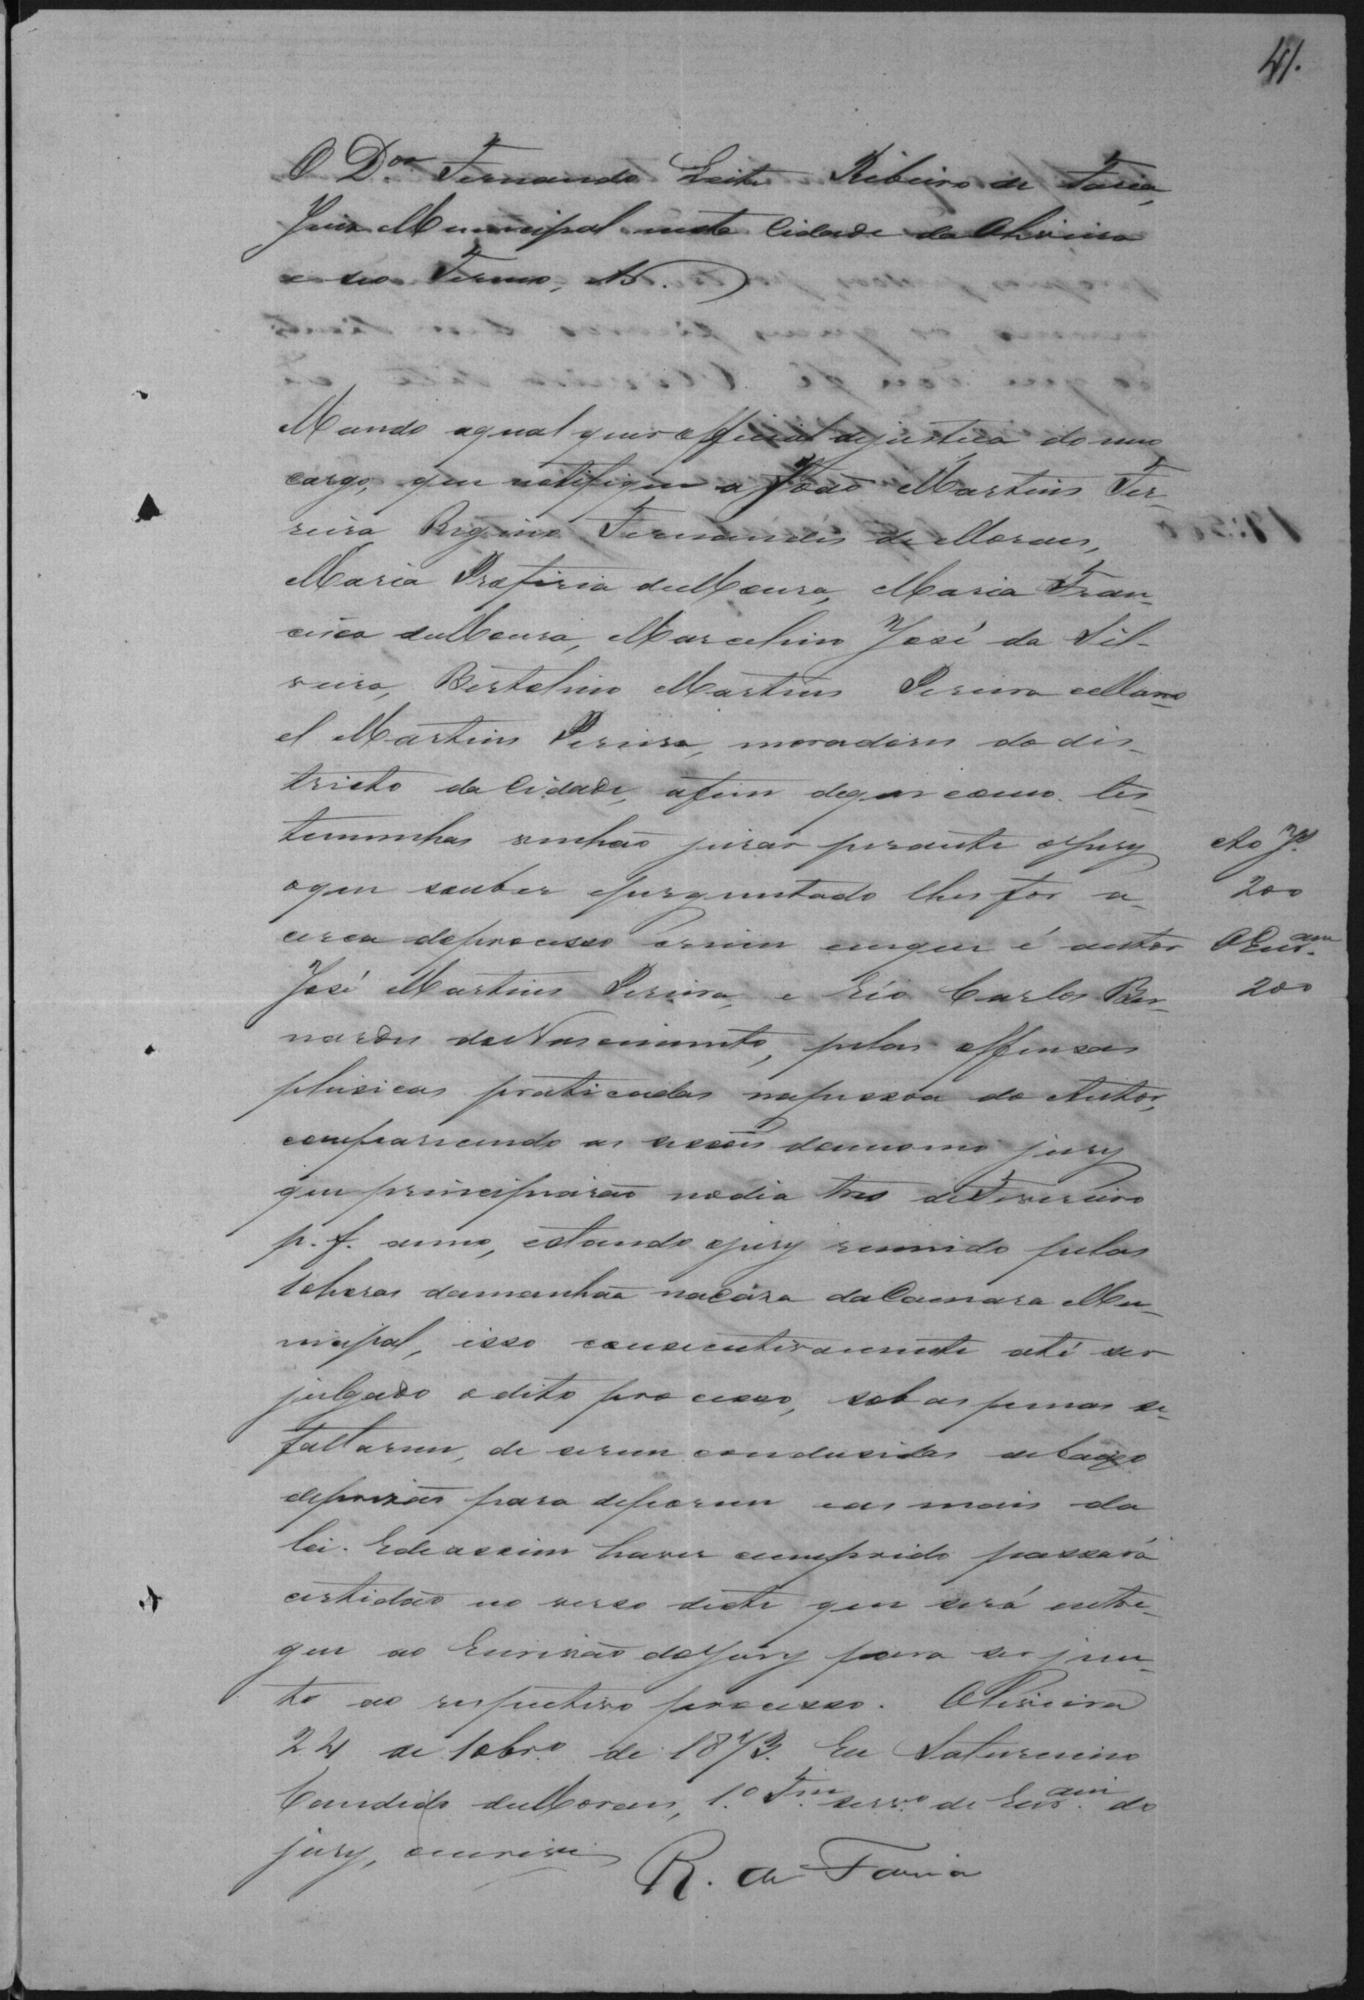 41.
O D.or Fernando Leite Ribeiro de Faria,
Juiz Municipal nesta Cidade da Oliveira
e seo Termo, &.
Mando aqualquer official dejustica do meu
cargo, que notifique a João Martins Fer-
reira Regino Fernandes de Moraes,
Maria Prefiria deMoura, Maria Fran-
cisca deMoura, Marcelino José da Sil-
veira, Bertolino Martins Pereira eMano
el Martins Pereira, moradores do dis-
tricto da Cidade, afim deque como tes-
temunhas venhão jurar perante ojury
oque souber eperguntado lhes for a-
cerca doprocesso crime emque é autor
José Martins Pereira, e Réo Carlos Ber-
nardes doNascimento, pelas offensas
phisicas praticadas napessoa do Autor,
comparecendo as sessões domesmo jury
que principiarão nodia tres deFevereiro
p. f. anno, estando ojury reunido pelas
10horas damanhãa nacáza daCamara Mu-
nicipal, isso consecutivamente até ser
julgado odito processo, sob as penas se
faltarem, de serem condusidas debaixo
deprizão para deporem eas mais da
lei. Edeassim haver cumprido passará
certidão no verso deste que será entre-
gue ao Escrivão dojury para ser jun-
to ao respectivo processo. Oliveira
24 de 10br.o de 1873. Eu Saturnino
Candido deMoraes, 1.o T.m serv.o de Esc.am do
jury, escrevi
R. de Faria
Ao J.
200
AoEsc.am
200